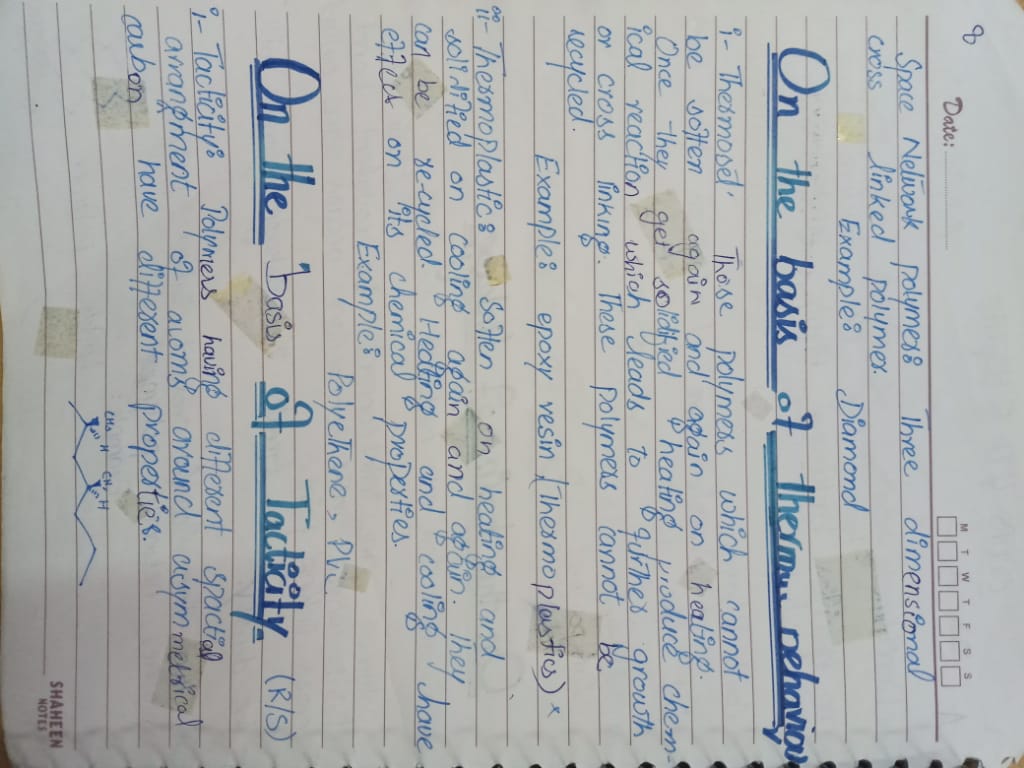 8
Date:
M T W T F S S
Space Network polymers: Three dimensional
cross linked polymer.
Example: Diamond
On the basis of thermal behaviour
i- Thermoset: Those polymers which cannot
be soften again and again on heating.
Once they get solidified heating produce chem-
ical reaction which leads to further growth
or cross linking. These polymers cannot be
recycled.
Example: epoxy resin (thermoplastics) x
ii- Thermoplastic: soften on heating and
solidified on cooling again and again. They
can be re-cycled. Heating and cooling have
effect on its chemical properties.
Example:
Polyethene, PVC
On the basis of Tacticity (R/S)
i- Tacticity: Polymers having different spacial
arrangment of atoms around asymmetrical
carbon have different properties.
CH₃ H CH₃ H
SHAHEEN
NOTES